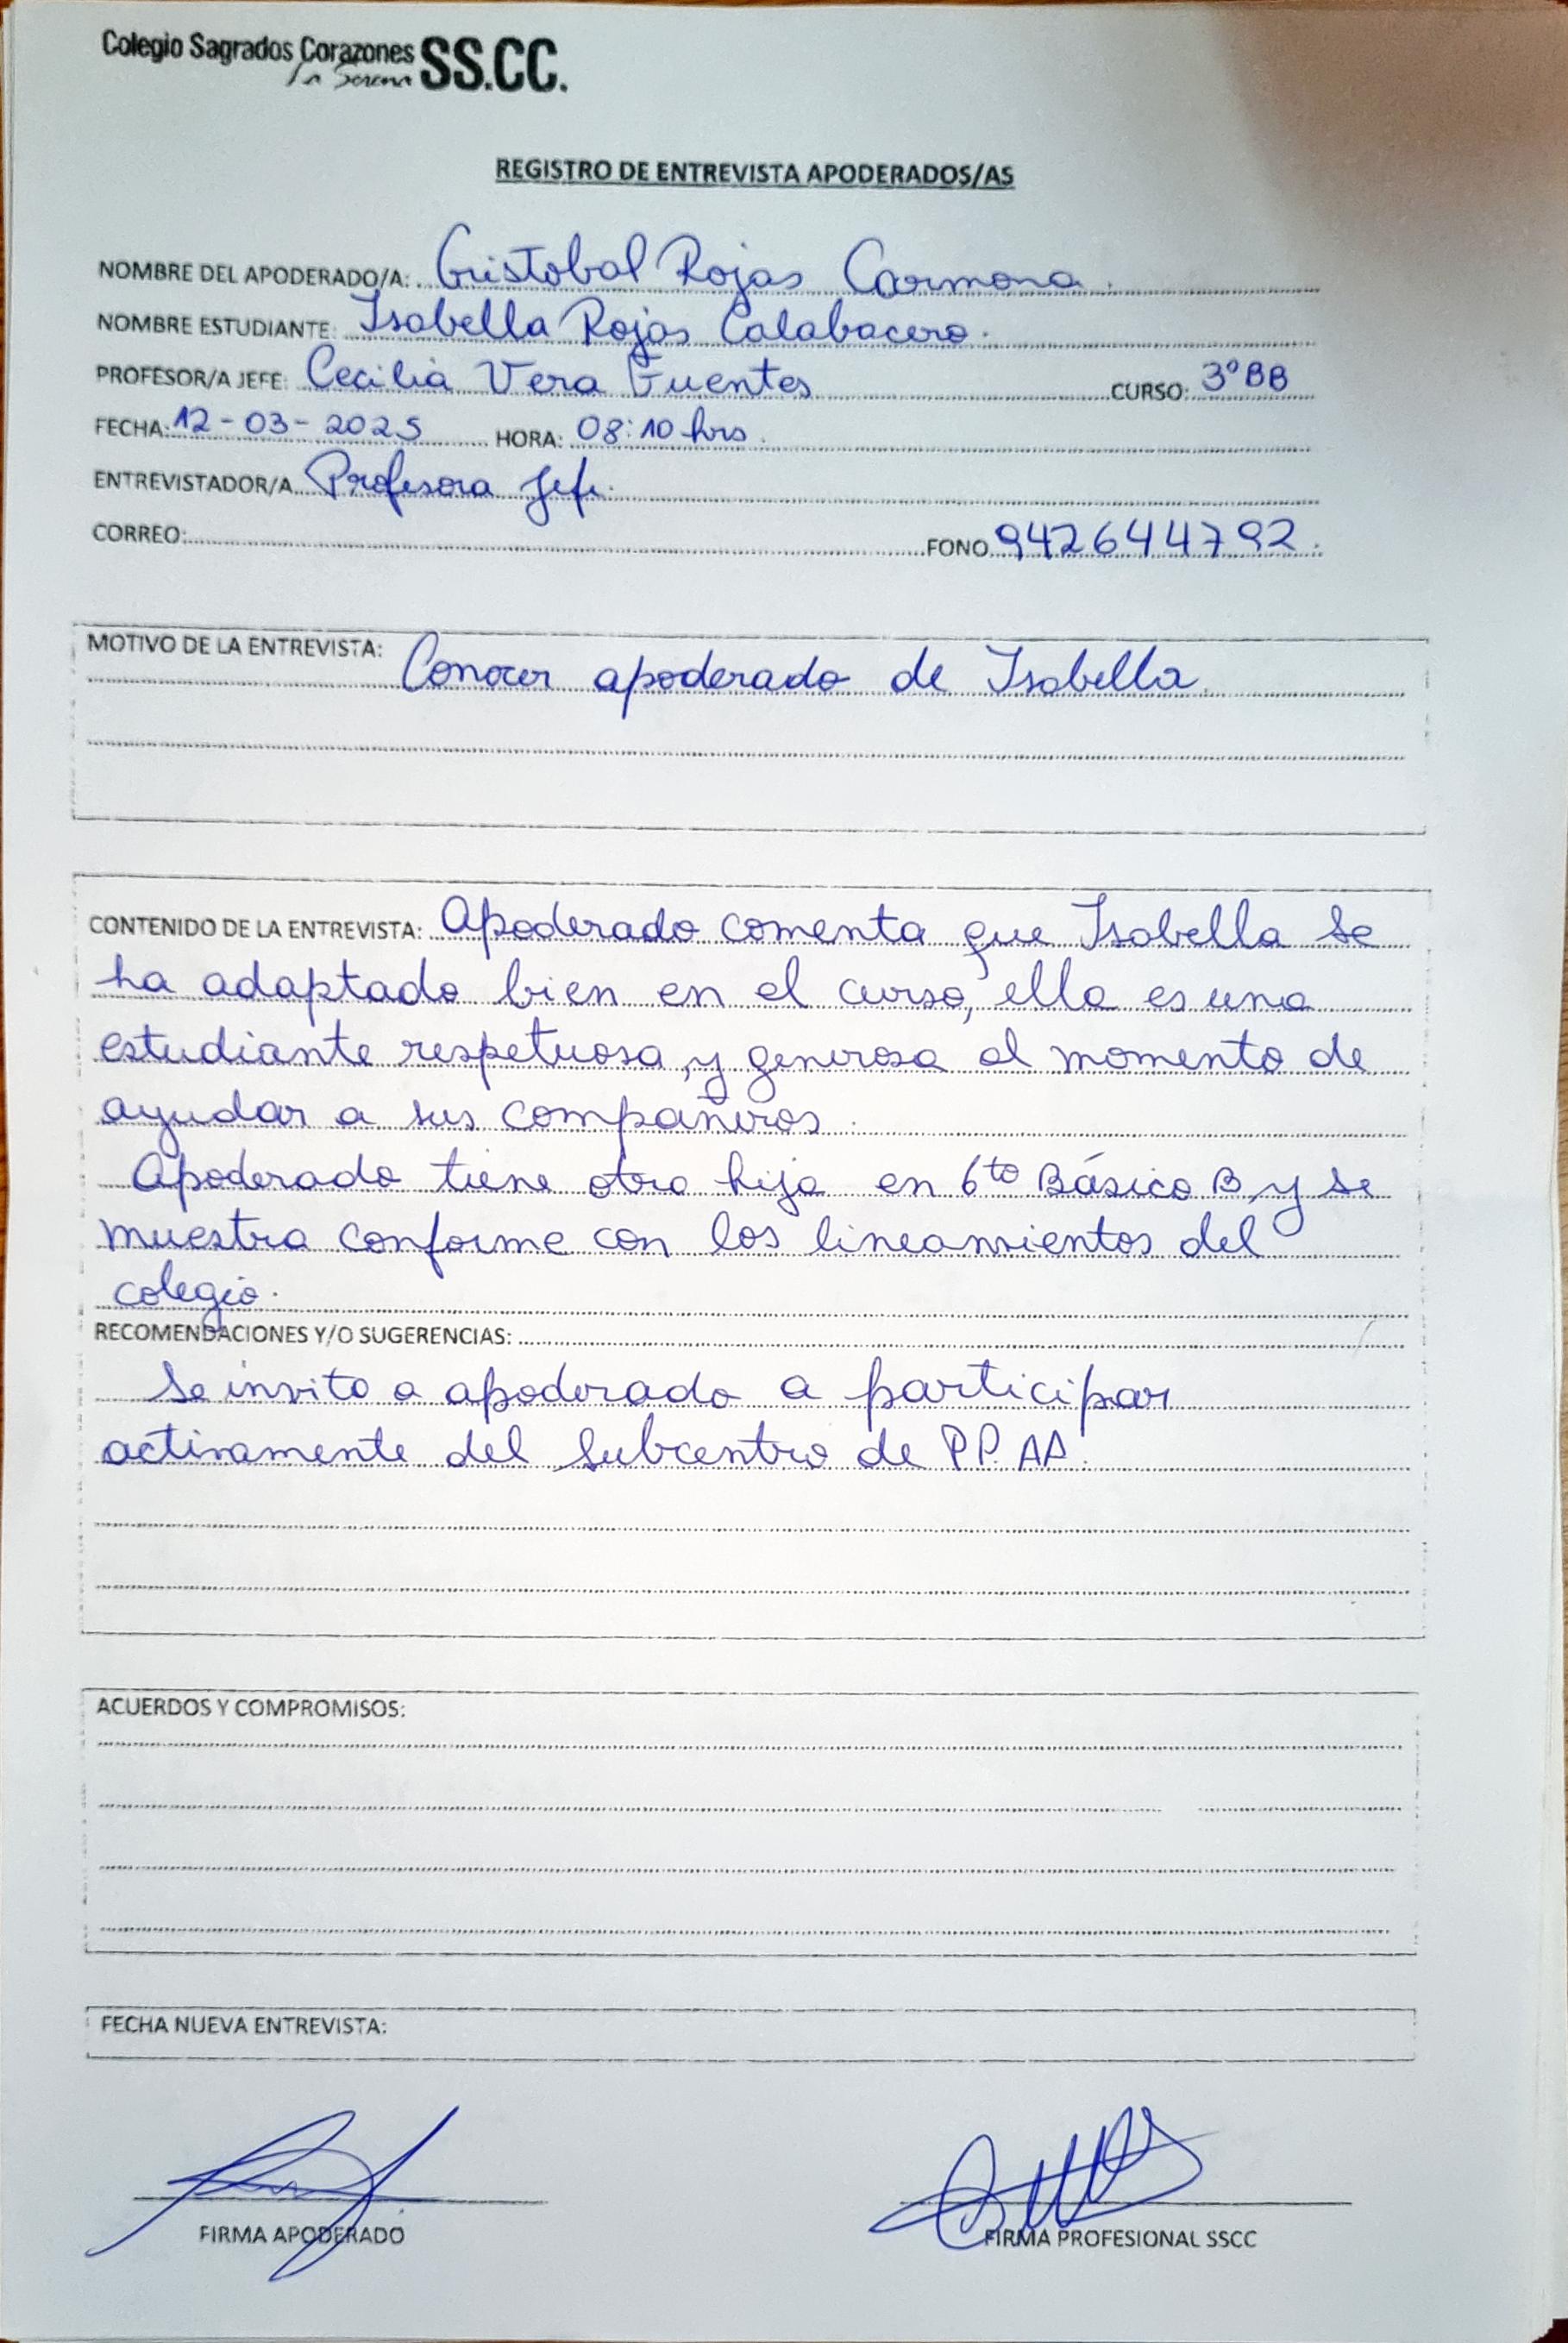 Colegio Sagrados Corazones SS.CC.
La Serena
REGISTRO DE ENTREVISTA APODERADOS/AS
NOMBRE DEL APODERADO/A: Cristobal Rojas Carmona.
NOMBRE ESTUDIANTE: Isabella Rojas Calabacero.
PROFESOR/A JEFE: Cecilia Vera Fuentes CURSO: 3°BB
FECHA: 12-03-2025 HORA: 08:10 hrs.
ENTREVISTADOR/A Profesora Jefe.
CORREO: FONO 942644792.
MOTIVO DE LA ENTREVISTA: Conocer apoderado de Isabella.
CONTENIDO DE LA ENTREVISTA: Apoderado comenta que Isabella se
ha adaptado bien en el curso, ella es una
estudiante respetuosa, y generosa al momento de
ayudar a sus compañeros.
Apoderado tiene otra hija en 6to Básico B, y se
muestra conforme con los lineamientos del
colegio.
RECOMENDACIONES Y/O SUGERENCIAS:
Se invita a apoderado a participar
activamente del subcentro de PP.AA.
ACUERDOS Y COMPROMISOS:
FECHA NUEVA ENTREVISTA:
FIRMA APODERADO FIRMA PROFESIONAL SSCC